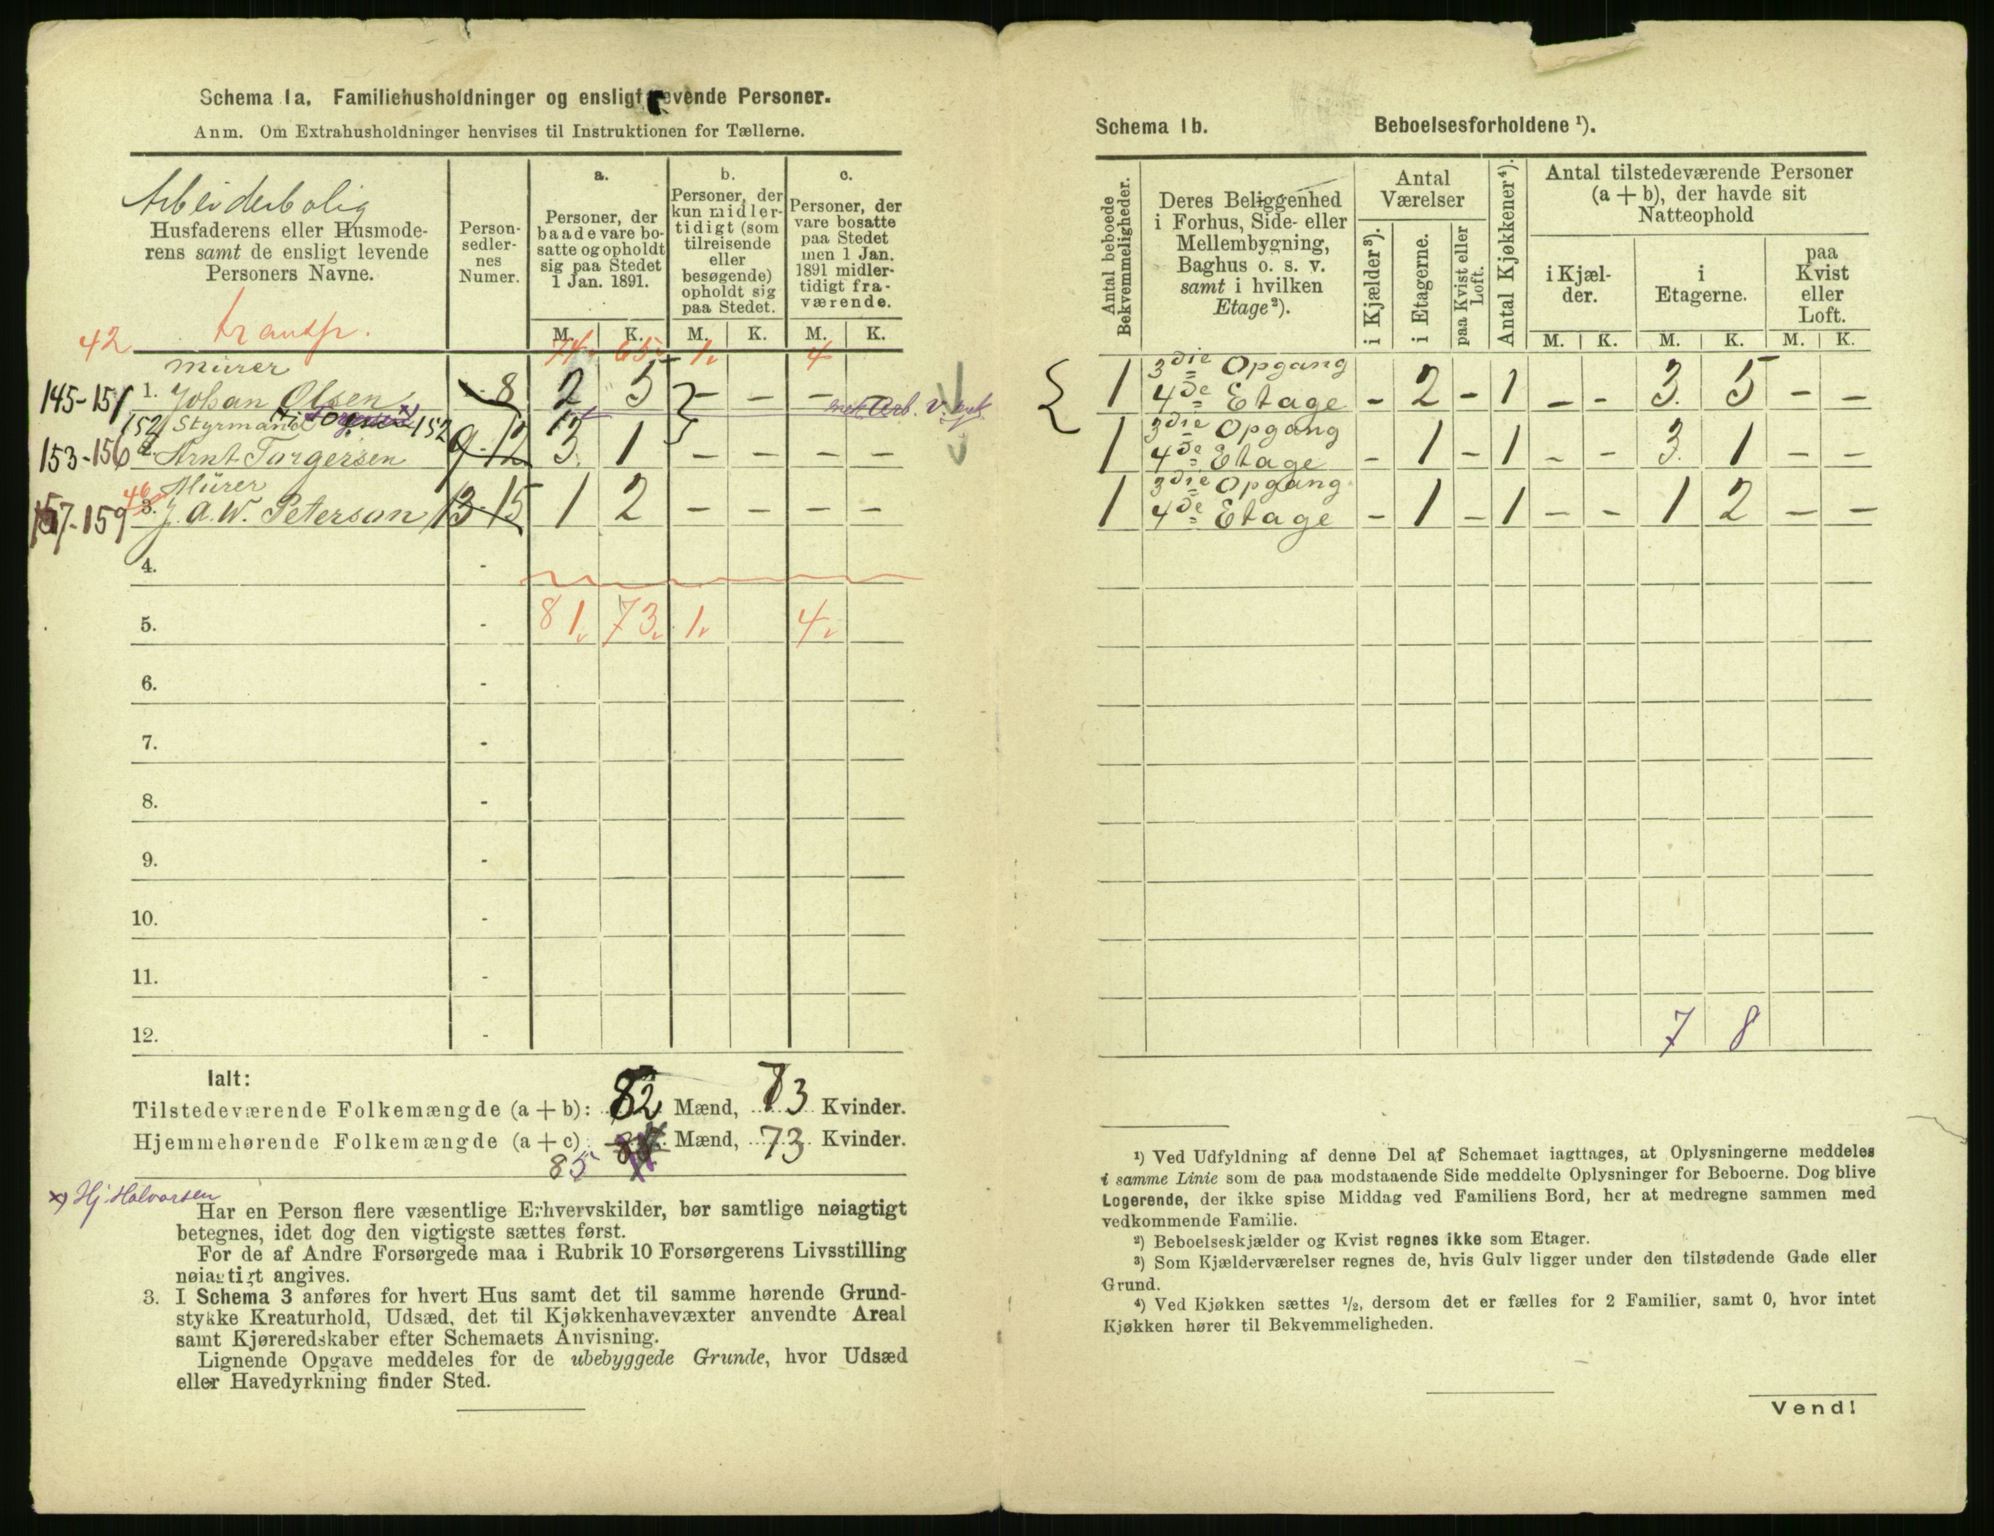 Schema 1a. Familiehusholdninger og ensligt levende Personer.
Anm. Om Extrahusholdninger henvises til Instruktionen for Tællerne.
Arbeiderbolig
Husfaderens eller Husmoderens samt de ensligt levende Personers Navne.
Person-sedlernes Numer.
a.
Personer, der baade vare bosatte og opholdt sig paa Stedet 1 Jan. 1891.
b.
Personer, der kun midlertidigt (som tilreisende eller besøgende) opholdt sig paa Stedet.
c.
Personer, der vare bosatte paa Stedet men 1 Jan. 1891 midlertidigt fraværende.
M. K. M. K. M. K.
42 transp. 74 65 1 4
Mürer
145-151 1. Johan Olsen - 8 2 5 - - - -
152 Styrmand 152
153-156 2. Arnt Torgersen 9-12 3 1 - - - -
46 Mürer
157-159 3. J. A. W. Peterson 13-15 1 2 - - - -
4. -
5. - 81 73 1 4
6. -
7. -
8. -
9. -
10. -
11. -
12. -
Ialt:
Tilstedeværende Folkemængde (a + b): 82 Mænd, 73 Kvinder.
Hjemmehørende Folkemængde (a + c) Mænd, 73 Kvinder.
85
x) Hj Halvorsen
Har en Person flere væsentlige Erhvervskilder, bør samtlige nøiagtigt
betegnes, idet dog den vigtigste sættes først.
For de af Andre Forsørgede maa i Rubrik 10 Forsørgerens Livsstilling
nøiagtigt angives.
3. I Schema 3 anføres for hvert Hus samt det til samme hørende Grund-
stykke Kreaturhold, Udsæd, det til Kjøkkenhavevæxter anvendte Areal
samt Kjøreredskaber efter Schemaets Anvisning.
Lignende Opgave meddeles for de ubebyggede Grunde, hvor Udsæd
eller Havedyrkning finder Sted.
Schema 1b. Beboelsesforholdene ¹).
Antal beboede Bekvemmeligheder.
Deres Beliggenhed i Forhus, Side- eller Mellembygning, Baghus o. s. v. samt i hvilken Etage²).
Antal Værelser
i Kjælder³).
i Etagerne.
paa Kvist eller Loft.
Antal Kjøkkener⁴).
Antal tilstedeværende Personer (a + b), der havde sit Natteophold
i Kjælder.
i Etagerne.
paa Kvist eller Loft.
M. K. M. K. M. K.
3die Opgang
1 4de Etage - 2 - 1 - - 3. 5 - -
3die Opgang
1 4de Etage - 1 - 1 - - 3. 1 - -
3die Opgang
1 4de Etage - 1 - 1 - - 1 2 - -
7 8
¹) Ved Udfyldning af denne Del af Schemaet iagttages, at Oplysningerne meddeles
i samme Linie som de paa modstaaende Side meddelte Oplysninger for Beboerne. Dog blive
Logerende, der ikke spise Middag ved Familiens Bord, her at medregne sammen med
vedkommende Familie.
²) Beboelseskjælder og Kvist regnes ikke som Etager.
³) Som Kjælderværelser regnes de, hvis Gulv ligger under den tilstødende Gade eller
Grund.
⁴) Ved Kjøkken sættes ½, dersom det er fælles for 2 Familier, samt 0, hvor intet
Kjøkken hører til Bekvemmeligheden.
Vend!